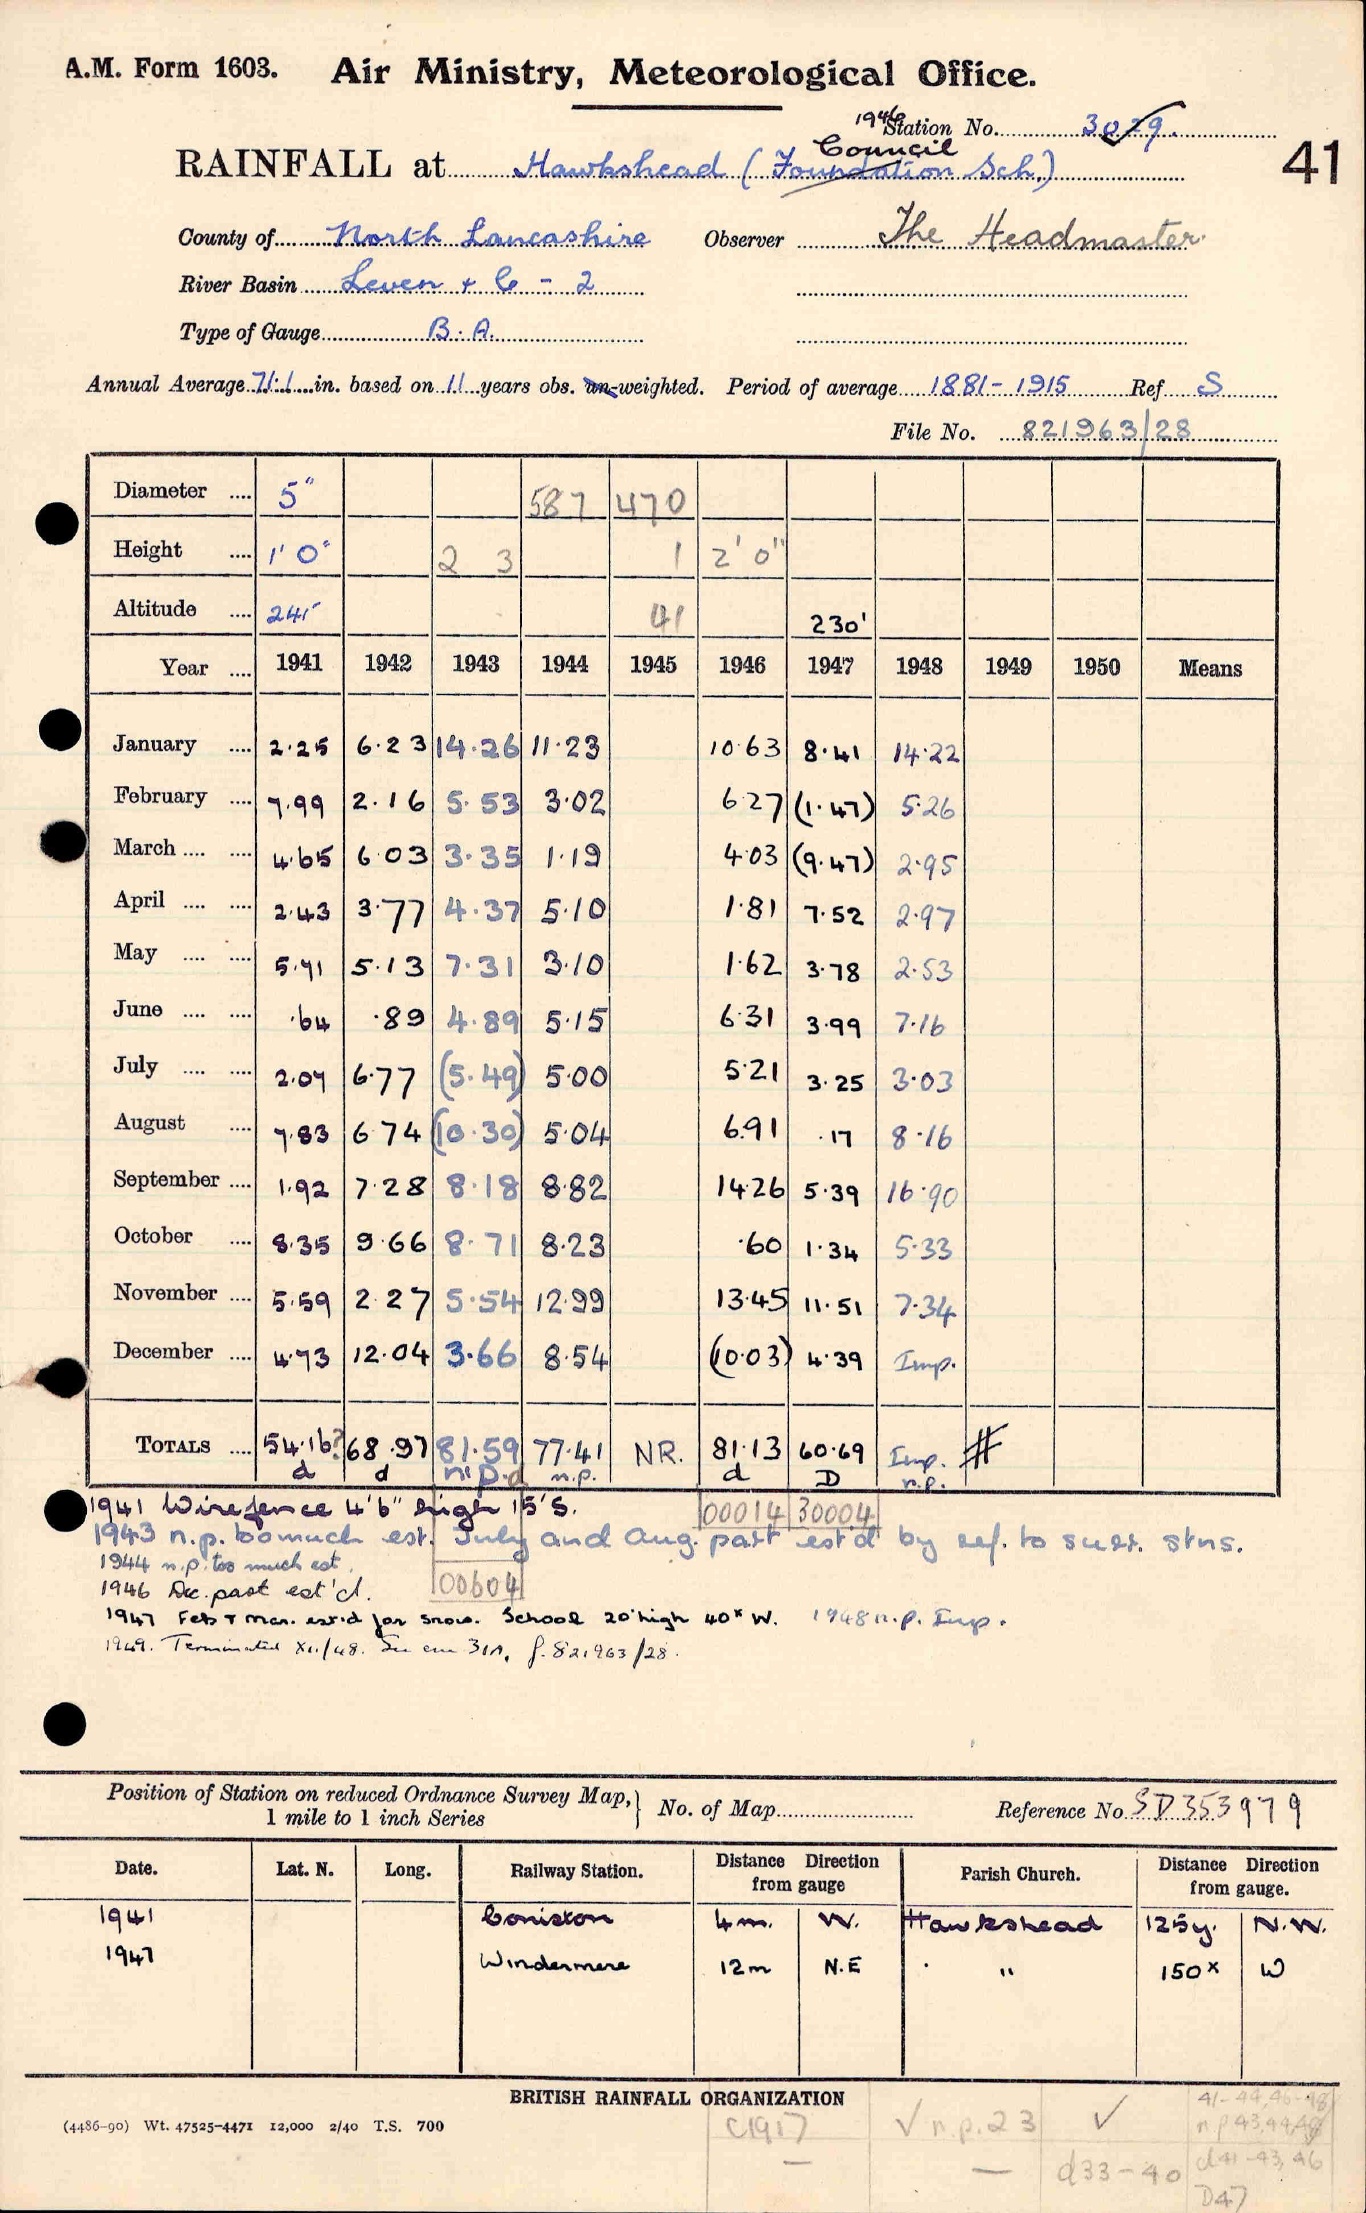 A.M. Form 1603. Air Ministry, Meteorological Office.
1946 Station No. 3029.
Council
RAINFALL at Hawkshead (Foundation Sch.) 41
County of North Lancashire Observer The Headmaster
River Basin Leven & C - 2
Type of Gauge B.A.
Annual Average 71.1 in. based on 11 years obs. un-weighted. Period of average 1881-1915 Ref S
File No. 821963/28
Diameter .... 5" 587 470
Height .... 1' 0" 2 3 1 2' 0"
Altitude .... 241' 41 230'
Year .... 1941 1942 1943 1944 1945 1946 1947 1948 1949 1950 Means
January .... 2.25 6.23 14.26 11.23 10.63 8.41 14.22
February .... 7.99 2.16 5.53 3.02 6.27 (1.47) 5.26
March .... .... 4.65 6.03 3.35 1.19 4.03 (9.47) 2.95
April .... .... 2.43 3.77 4.37 5.10 1.81 7.52 2.97
May .... .... 5.71 5.13 7.31 3.10 1.62 3.78 2.53
June .... .... .64 .89 4.89 5.15 6.31 3.99 7.16
July .... .... 2.07 6.77 (5.49) 5.00 5.21 3.25 3.03
August .... 7.83 6.74 (10.30) 5.04 6.91 .17 8.16
September .... 1.92 7.28 8.18 8.82 14.26 5.39 16.90
October .... 8.35 9.66 8.71 8.23 .60 1.34 5.33
November .... 5.59 2.27 5.54 12.99 13.45 11.51 7.34
December .... 4.73 12.04 3.66 8.54 (10.03) 4.39 Imp.
TOTALS .... 54.16? 68.97 81.59 77.41 NR. 81.13 60.69 Imp. #
d d n.p.d n.p. d D n.p.
1941 Wirefence 4'6" high 15'S. 00014 30004
1943 n.p. too much est. July and Aug. part est'd by ref. to surr. stns.
1944 n.p. too much est.
1946 Dec. part est'd. 00604
1947 Feb & Mar. est'd for snow. School 20' high 40x W. 1948 n.p. Imp.
1949. Terminated XII/48. See 31A, f. 821963/28.
Position of Station on reduced Ordnance Survey Map, 1 mile to 1 inch Series } No. of Map Reference No. SD353979
Date. Lat. N. Long. Railway Station. Distance Direction from gauge Parish Church. Distance Direction from gauge.
1941 Coniston 4m. W. Hawkshead 125y. N.W.
1947 Windermere 12m N.E " 150x W
BRITISH RAINFALL ORGANIZATION
(4486-90) Wt. 47525-4471 12,000 2/40 T.S. 700
C1917 ✓ n.p. 23 ✓ 41-44, 46-48
n p 43,44,48
— — d33-40 d41-43, 46
D47